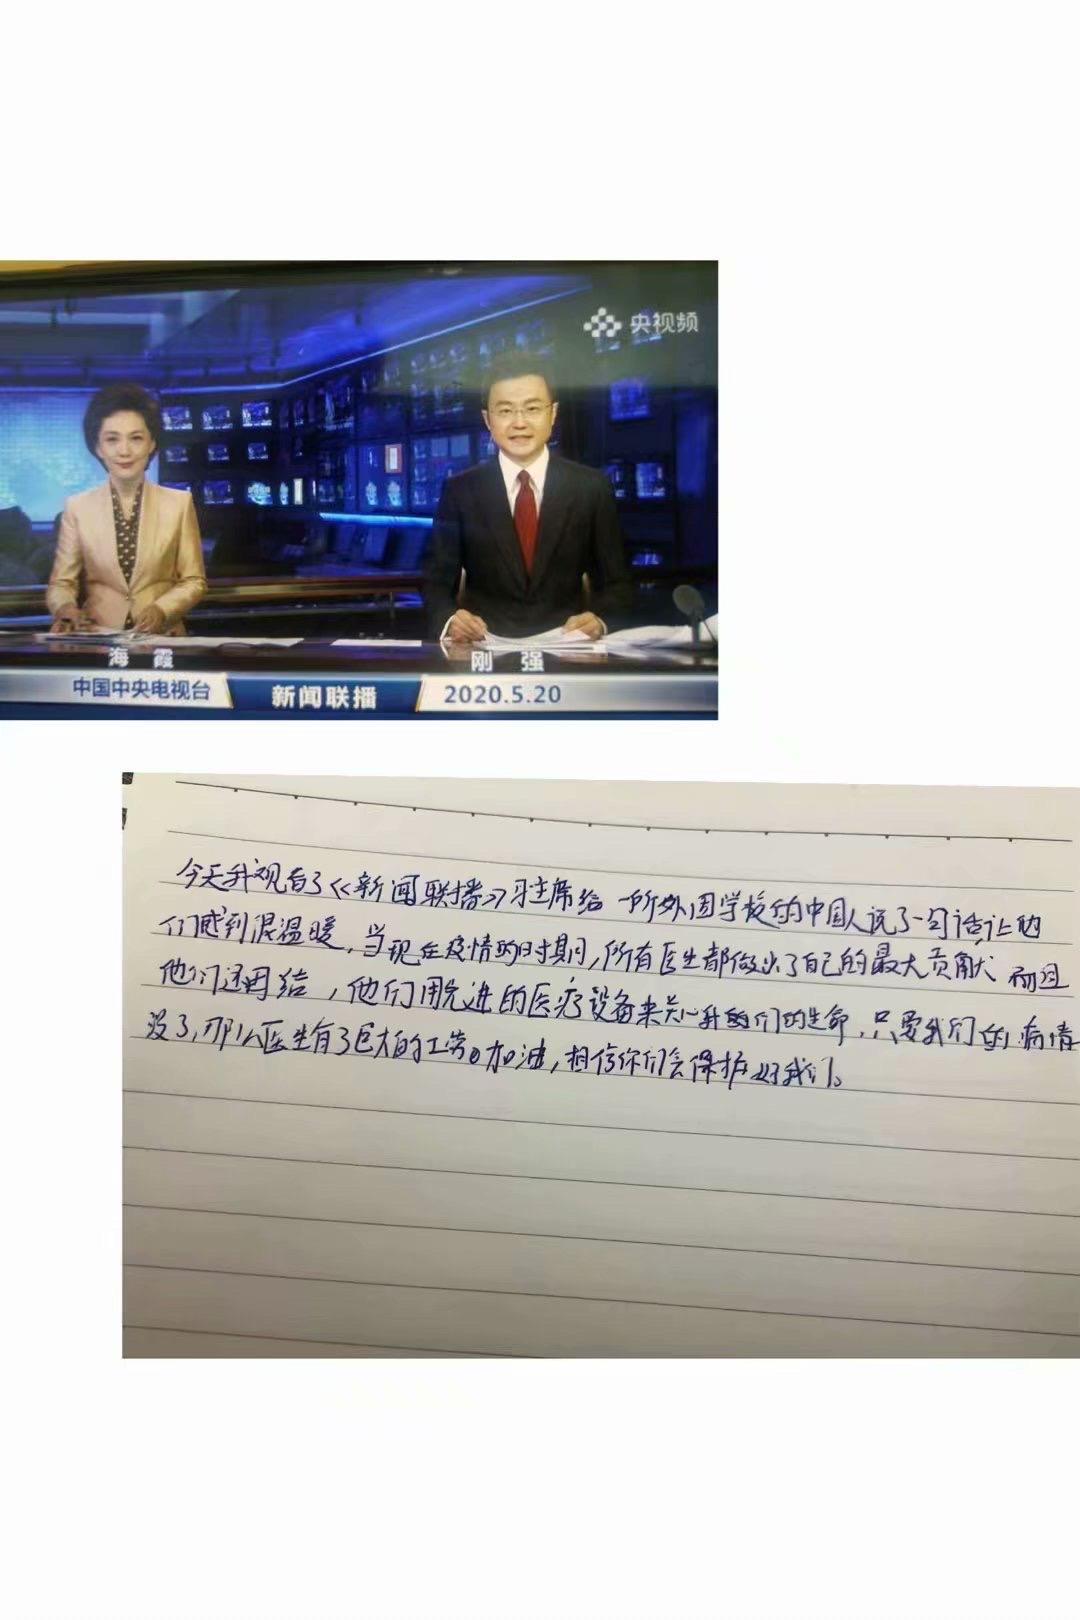 央视频
海霞
刚强
中国中央电视台
新闻联播
2020.5.20
今天我观看了《新闻联播》习主席给一所外国学校的中国人说了一句话让他
们感到很温暖，当现在疫情的时期，所有医生都做出了自己的最大贡献 而且
他们还再结，他们用先进的医疗设备来关心我们的生命，只要我们的病情
没了，那么医生有了巨大的工劳。加油，相信你们会保护好我们。